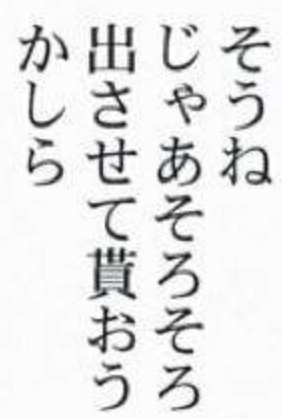 そうね
じゃあそろそろ
出させて貰おう
かしら